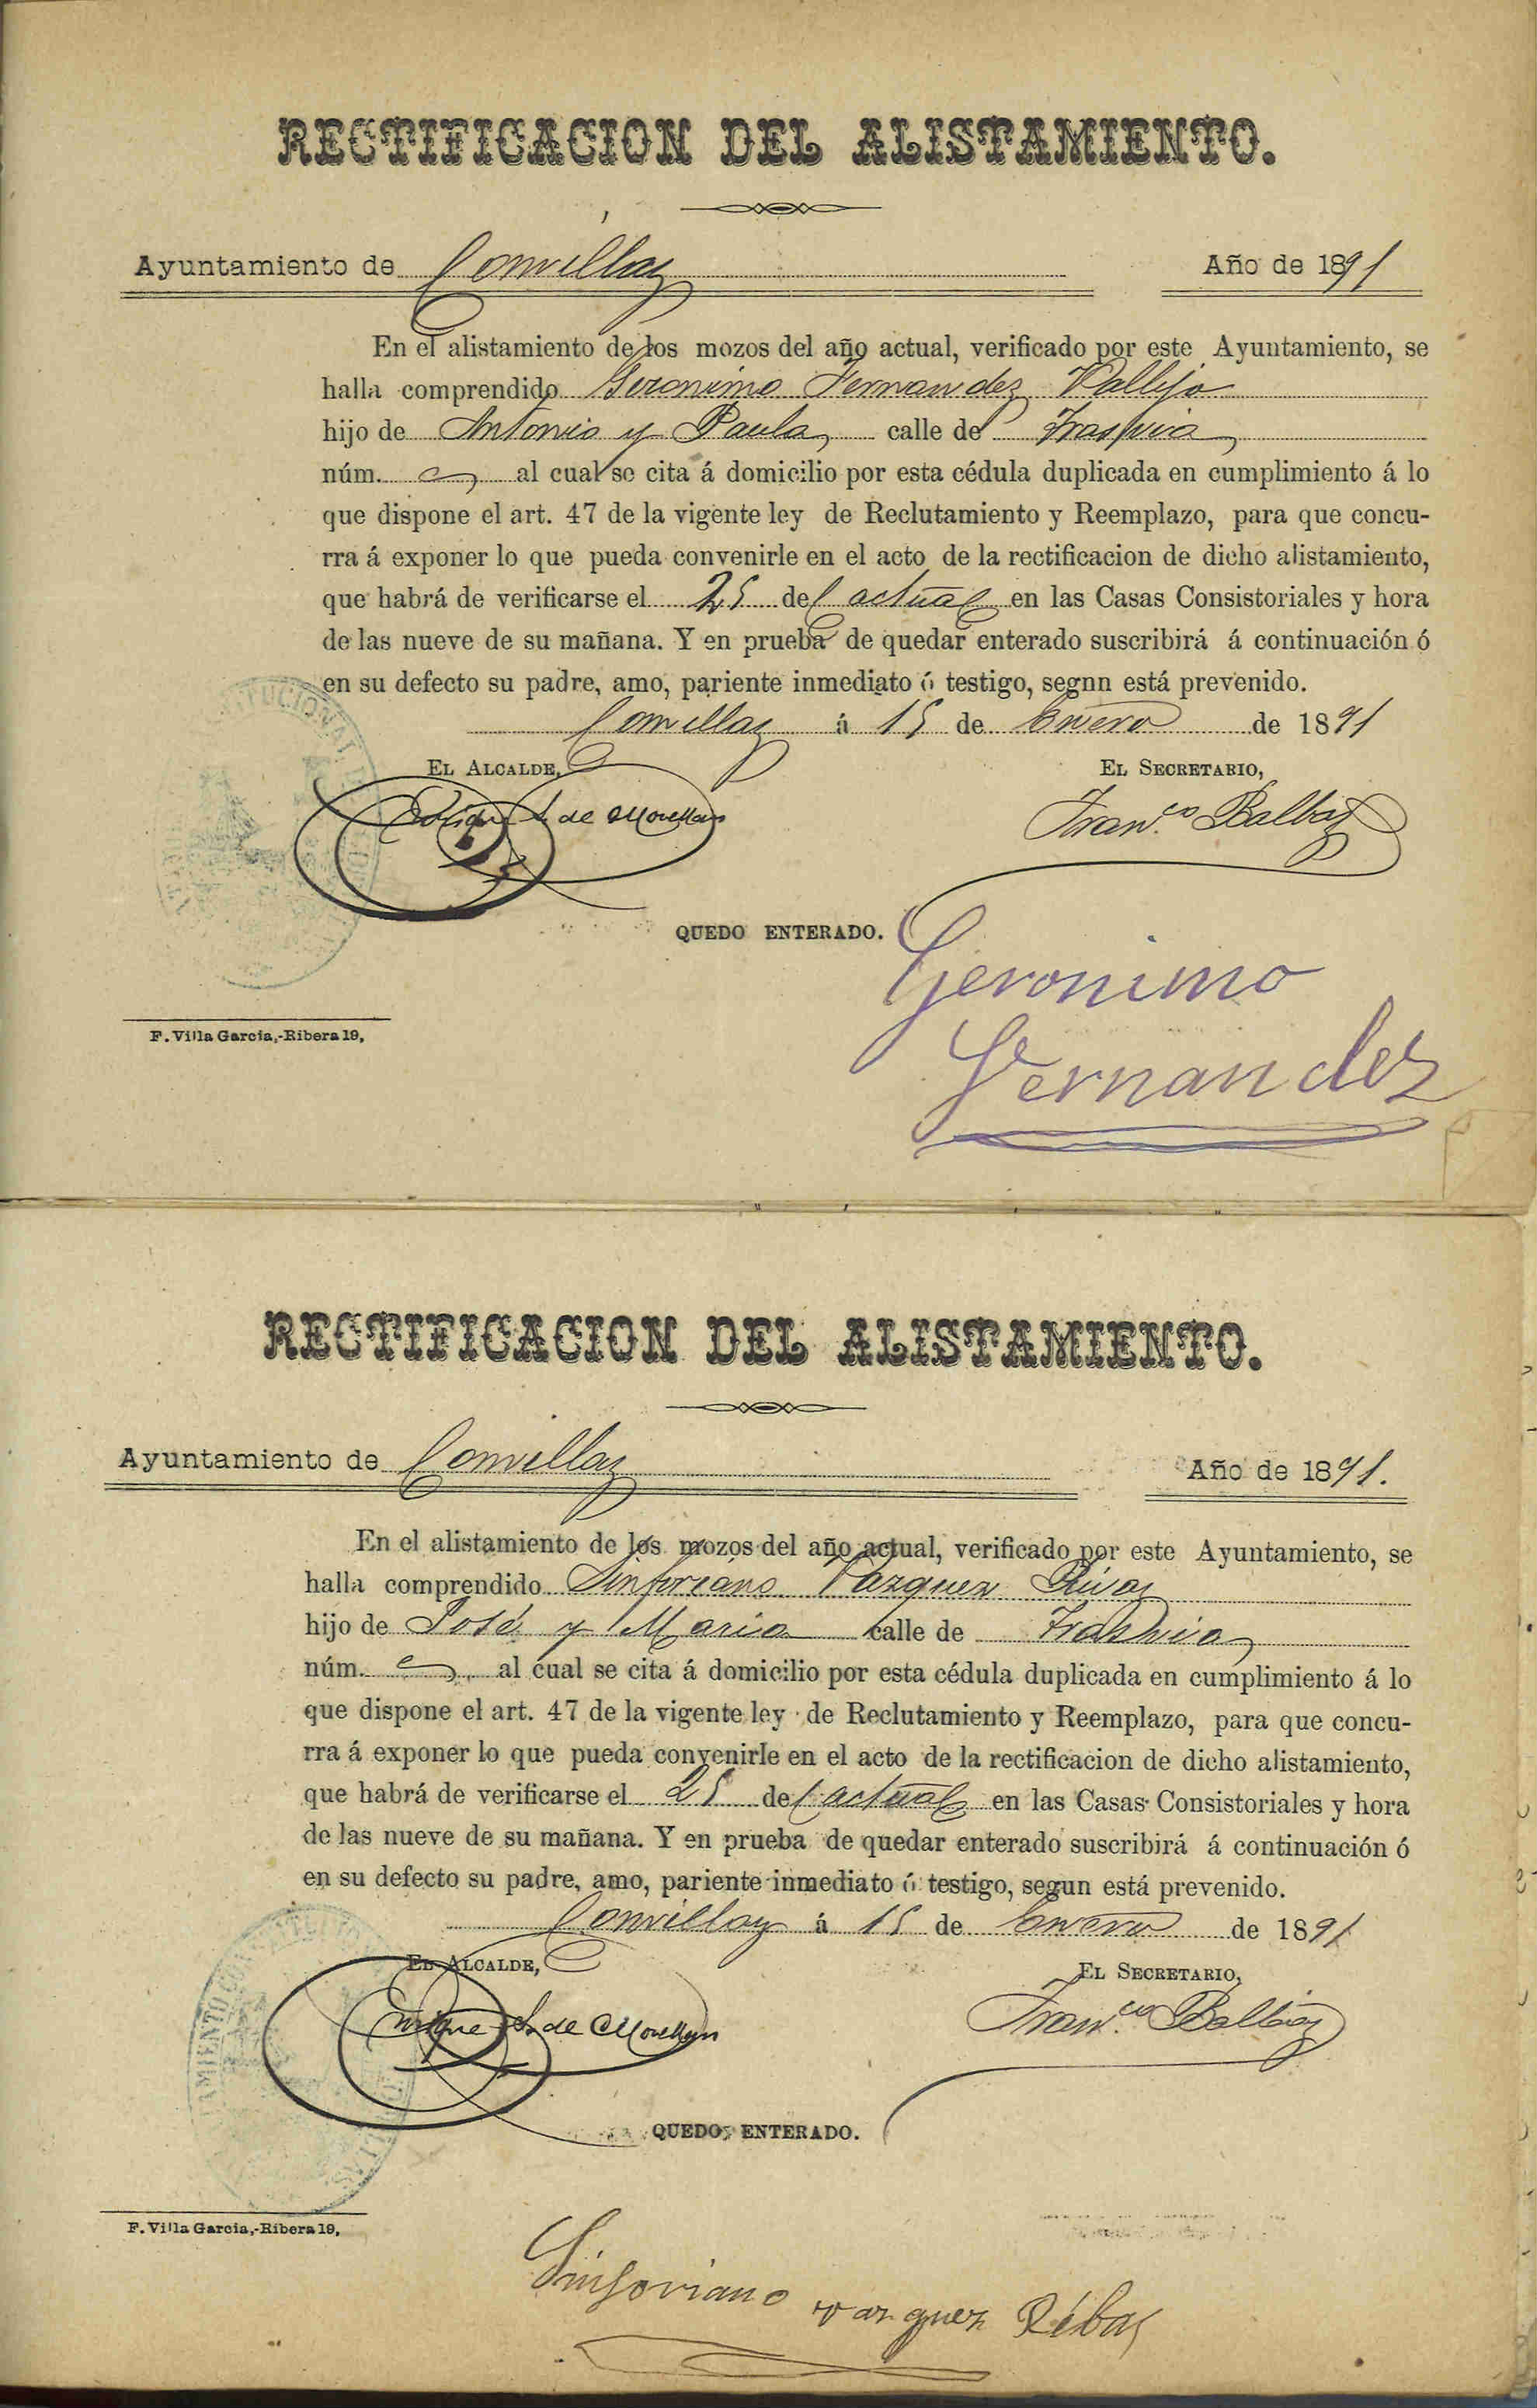 RECTIFICACION DEL ALISTAMIENTO.
Ayuntamiento de Comillas Año de 1891
En el alistamiento de los mozos del año actual, verificado por este Ayuntamiento, se
halla comprendido Geronimo Fernandez Vallejo
hijo de Antonio y Paula, calle de Trasvia,
núm. al cual se cita á domicilio por esta cédula duplicada en cumplimiento á lo
que dispone el art. 47 de la vigente ley de Reclutamiento y Reemplazo, para que concu-
rra á exponer lo que pueda convenirle en el acto de la rectificacion de dicho alistamiento,
que habrá de verificarse el 25 del actual en las Casas Consistoriales y hora
de las nueve de su mañana. Y en prueba de quedar enterado suscribirá á continuación ó
en su defecto su padre, amo, pariente inmediato ó testigo, segnn está prevenido.
Comillas á 15 de Enero de 1891
EL ALCALDE, EL SECRETARIO,
Enrique S. de Movellan Fran.co Balbas
QUEDO ENTERADO.
Geronimo
Fernandez
F. Villa Garcia,-Ribera 19,
RECTIFICACION DEL ALISTAMIENTO.
Ayuntamiento de Comillas Año de 1891.
En el alistamiento de los mozos del año actual, verificado por este Ayuntamiento, se
halla comprendido Sinforiano Vazquez Rivas
hijo de José y Maria calle de Trasvia,
núm. al cual se cita á domicilio por esta cédula duplicada en cumplimiento á lo
que dispone el art. 47 de la vigente ley de Reclutamiento y Reemplazo, para que concu-
rra á exponer lo que pueda convenirle en el acto de la rectificacion de dicho alistamiento,
que habrá de verificarse el 25 del actual en las Casas Consistoriales y hora
de las nueve de su mañana. Y en prueba de quedar enterado suscribirá á continuación ó
en su defecto su padre, amo, pariente inmediato ó testigo, segun está prevenido.
Comillas á 15 de Enero de 1891
EL ALCALDE, EL SECRETARIO,
Enrique S. de Movellan Fran.co Balbas
QUEDO ENTERADO.
F. Villa Garcia,-Ribera 19,
Sinforiano vazquez Ribas